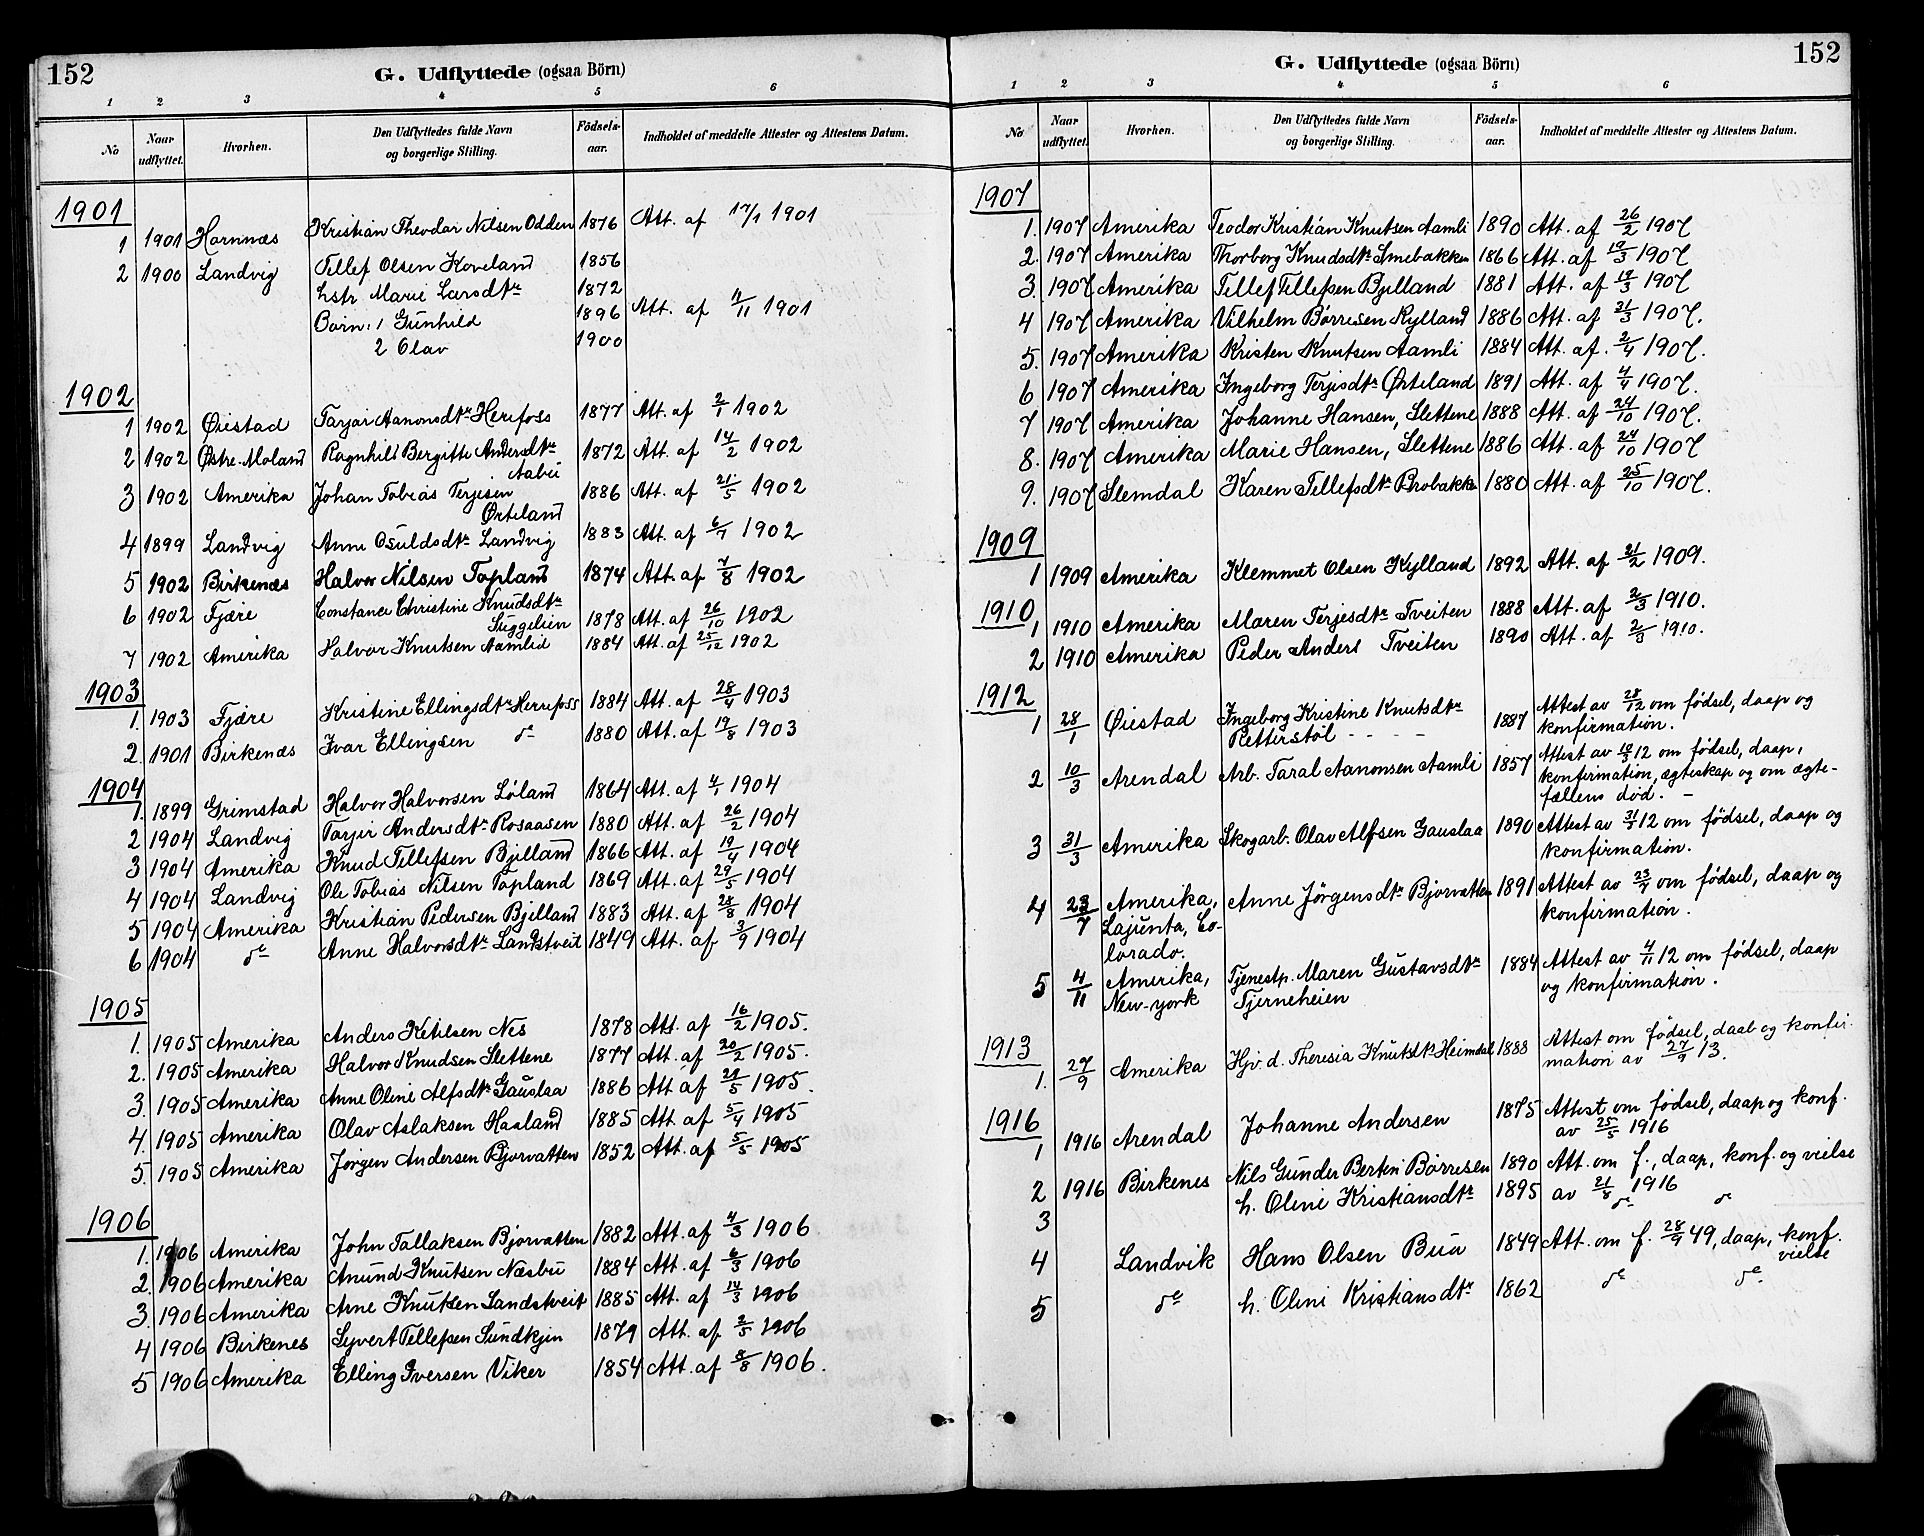 152
G. Udflyttede (ogsaa Börn)
1 2 3 4 5 6
No Naar udflyttet. Hvorhen. Den Udflyttedes fulde Navn og borgerlige Stilling. Födsels-aar. Indholdet af meddelte Attester og Attestens Datum.
1901
1 1901 Hornnæs Kristian Theodor Nilsen Odden 1876 Att. af 17/1 1901
2 1900 Landvig Tellef Olsen Koveland 1856
hstr Marie Larsdtr 1872
Börn: 1 Gunhild 1896 Att. af 4/11 1901
2 Olav 1900
1902
1 1902 Øiestad Tarjer Aanonsdtr Herefoss 1877 Att. af 2/1 1902
2 1902 Østre Moland Ragnhild Bergitte Andersdtr 1872 Att. af 14/2 1902
Aabu
3 1902 Amerika Johan Tobias Terjesen 1886 Att. af 21/5 1902
Ørteland
4 1899 Landvig Anne Osuldsdtr Landvig 1883 Att. af 6/7 1902
5 1902 Birkenæs Halvor Nilsen Topland 1874 Att. af 7/8 1902
6 1902 Fjære Constance Christine Knudsdtr
Suggelien 1878 Att. af 26/10 1902
7 1902 Amerika Halvor Knutsen Aamlid 1884 Att. af 25/12 1902
1903
1. 1903 Fjære Kristine Ellingsdtr Herrefoss 1884 Att. af 28/4 1903
2. 1901 Birkenæs Ivar Ellingsen do 1880 Att. af 19/8 1903
1904
1. 1899 Grimstad Halvor Halvorsen Løland 1864 Att. af 4/1 1904
2 1904 Landvig Tarjer Andersdtr Rosaasen 1880 Att. af 26/2 1904
3 1904 Amerika Knud Tellefsen Bjelland 1866 Att. af 19/4 1904
4 1904 Landvig Ole Tobias Nilsen Topland 1869 Att. af 29/5 1904
5 1904 Amerika Kristian Pedersen Bjelland 1883 Att. af 28/8 1904
6 1904 do Anne Halvorsdtr Landstveit 1849 Att. af 3/9 1904
1905
1. 1905 Amerika Anders Ketilsen Nes 1878 Att. af 16/2 1905.
2. 1905 Amerika Halvor Knudsen Slettene 1877 Att. af 20/2 1905.
3. 1905 Amerika Anne Oline Alfsdtr Gauslaa 1886 Att af 29/5 1905.
4. 1905 Amerika Olav Aslaksen Hasland 1885 Att. af 5/4 1905
5. 1905 Amerika Jørgen Andersen Bjorvatten 1852 Att. af 5/5 1905
1906
1. 1906 Amerika John Tallaksen Bjorvatten 1882 Att. af 4/3 1906
2. 1906 Amerika Anund Knutsen Næsbu 1884 Att. af 6/3 1906
3. 1906 Amerika Arne Knutsen Landstveit 1885 Att. af 14/3 1906
4 1906 Birkenes Syvert Tellefsen Sundkjin 1879 Att. af 2/5 1906
5 1906 Amerika Elling Iversen Viker 1854 Att. af 8/8 1906.
152
G. Udflyttede (ogsaa Börn)
1 2 3 4 5 6
No Naar udflyttet. Hvorhen. Den Udflyttedes fulde Navn og borgerlige Stilling. Födsels-aar. Indholdet af meddelte Attester og Attestens Datum.
1907
1. 1907 Amerika Teodor Kristian Knutsen Aamli 1890 Att. af 26/2 1907
2. 1907 Amerika Thorborg Knudsdtr Smebakken 1866 Att. af 19/3 1907
3. 1907 Amerika Tellef Tellefsen Bjelland 1881 Att. af 19/3 1907
4 1907 Amerika Vilhelm Børresen Kylland 1886 Att. af 21/3 1907.
5. 1907 Amerika Kristen Knutsen Aamli 1884 Att. af. 2/4 1907.
6 1907 Amerika Ingeborg Terjesdtr Ørteland 1891 Att. af 4/4 1907.
7 1907 Amerika Johanne Hansen, Slettene 1888 Att. af 24/10 1907.
8. 1907 Amerika Marie Hansen, Slettene 1886 Att. af 24/10 1907
9. 1907 Slemdal Karen Tellefsdtr Brobakke 1880 Att. af 25/10 1907.
1909
1 1909 Amerika Klemmet Olsen Kylland 1892 Att. af 21/2 1909.
1910
1 1910 Amerika Maren Terjesdtr Tveiten 1888 Att. af 2/3 1910.
2 1910 Amerika Peder Anders Tveiten 1890 Att. af 2/3 1910.
1912
1 28/1 Øiestad Ingeborg Kristine Knutsdtr 1887 Attest av 28/12 om fødsel, daap og
Retterstøl - - - - konfirmation.
2 10/3 Arendal Arb. Taral Aanonsen Aamli 1857 Attest av 10/3 12 om fødsel, daap,
konfirmation, ægteskap og om ægte-
fællens død. -
3 31/3 Amerika Skogarb. Olav Alfsen Gauslaa 1890 Attest av 31/3 12 om fødsel, daap og
konfirmation.
4 23/7 Amerika, Anne Jörgensdtr Bjorvatten 1891 Attest av 23/7 om fødsel, daap og
Lajunta, Co- konfirmation.
lorado.
5 4/11 Amerika, Tjenestp. Maren Gustavsdtr 1884 Attest av 4/11 12 om fødsel, daap
New-york Tjerneheien og konfirmation.
1913
1. 27/9 Amerika Hjv. d. Theresia Knutsdtr Heimdal 1888 Attest om fødsel, daab og konfir-
mation av 27/9 13.
1916
1 1916 Arendal Johanne Andersen 1875 Attest om fødsel, daap og konf.
av 25/5 1916
2 1916 Birkenes Nils Gunder Bertin Børresen 1890 Att. om f., daap, konf. og vielse
3 h. Oline Kristiansdtr 1895 av 21/8 1916
do do
4 Landvik Hans Olsen Bua 1849 Att. om f. 28/9 49, daap, konf.
vielse
5 do h. Olini Kristiansdtr 1862 do do